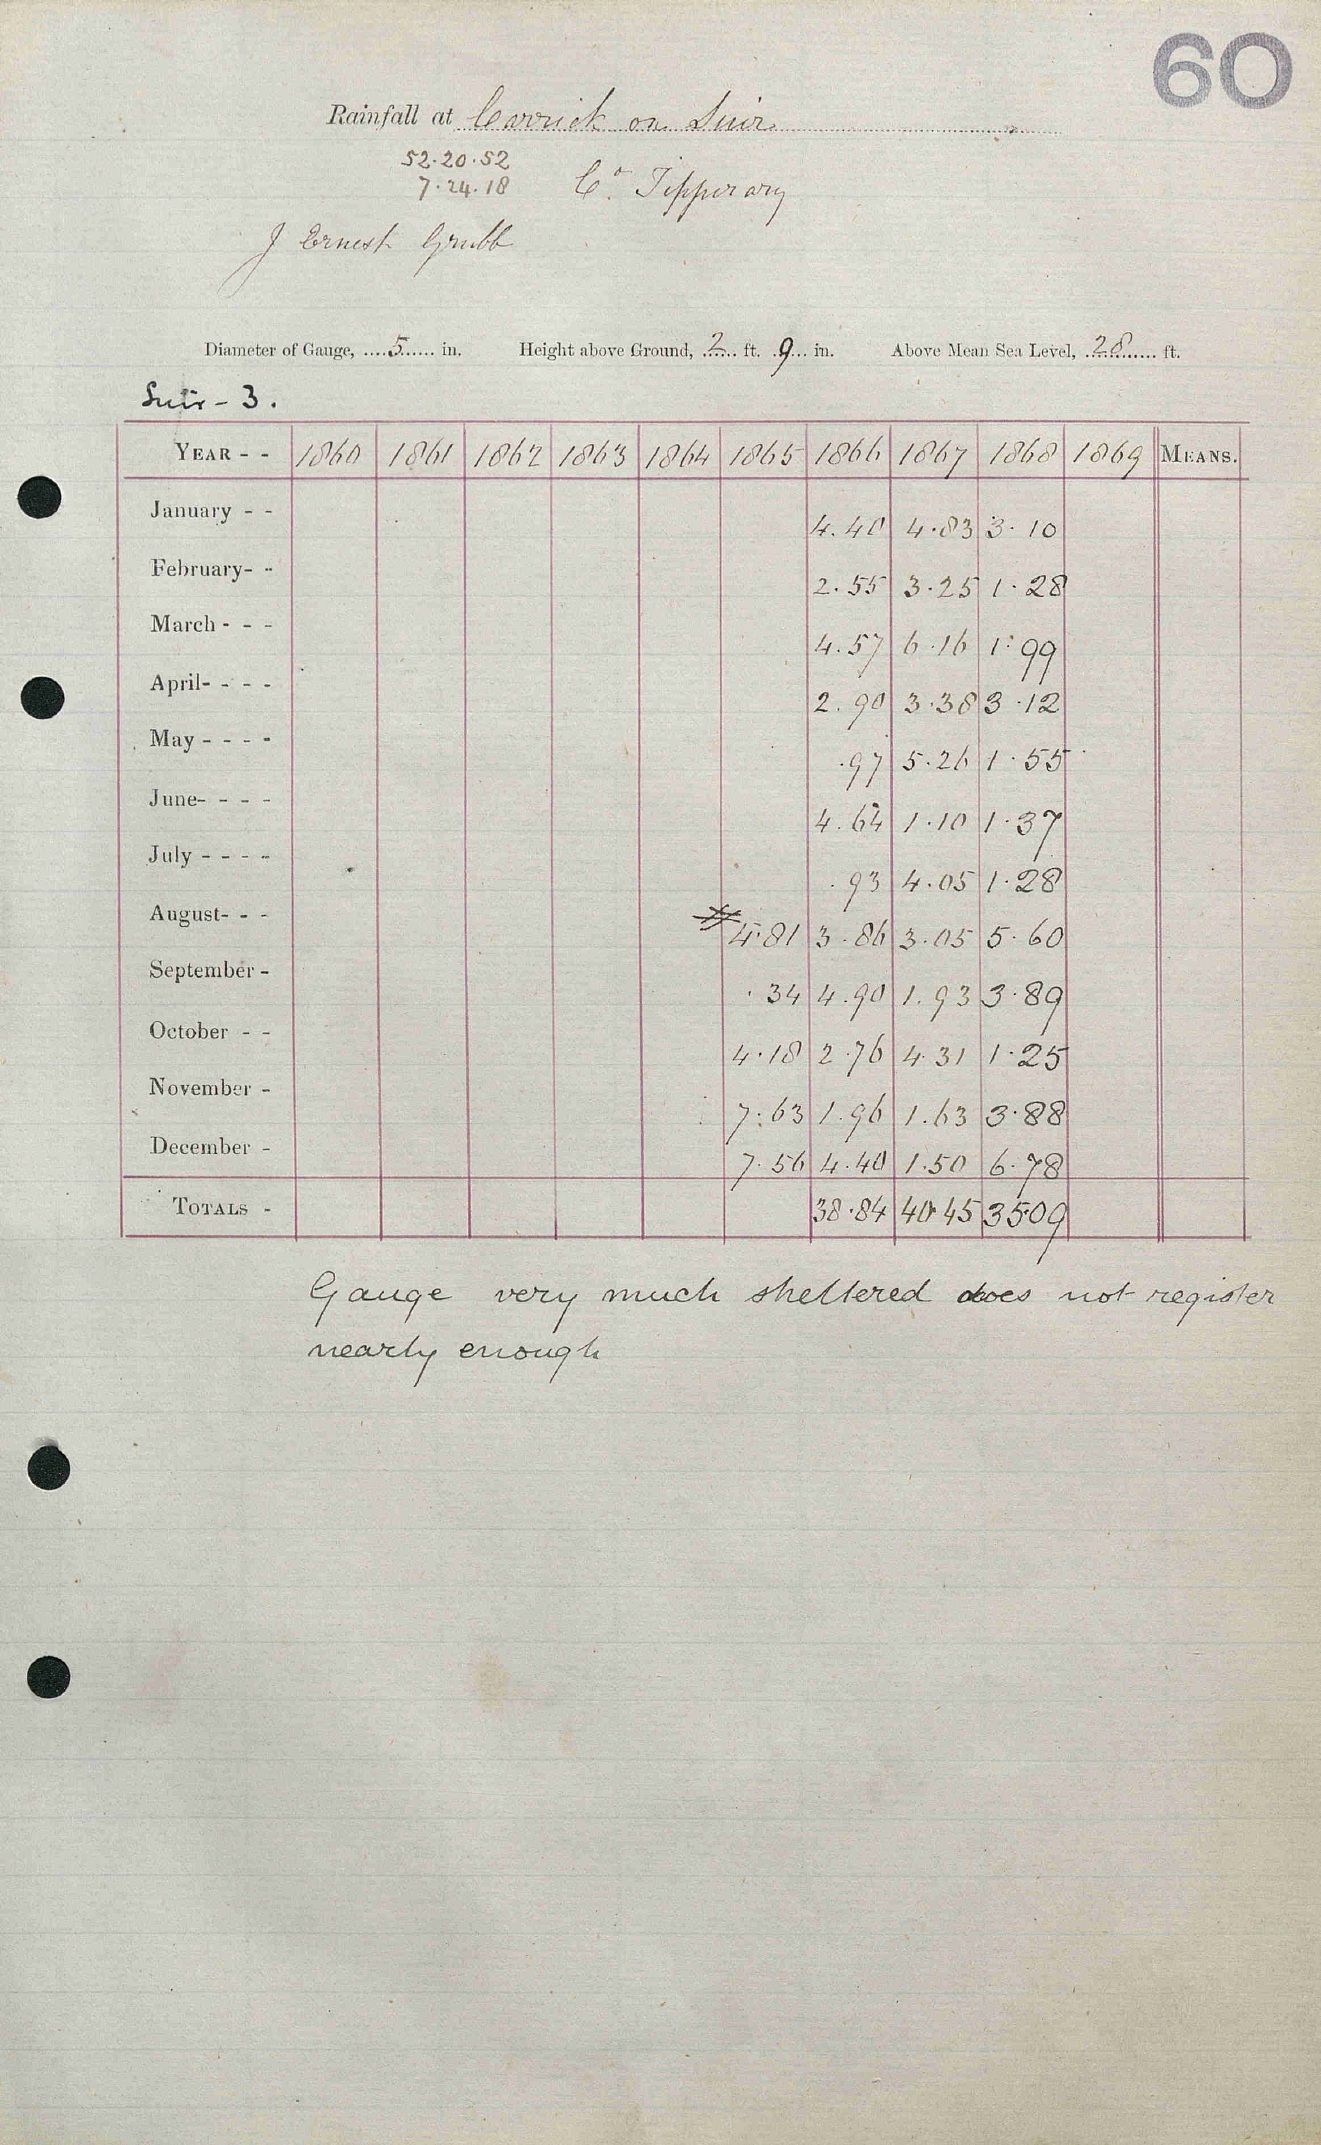 60
Rainfall at Carrick on Suir
52.20.52
7.24.18 Co. Tipperary
J Ernest Grubb
Diameter of Gauge, 5 in. Height above Ground, 2 ft. 9 in. Above Mean Sea Level, 28 ft.
Suir - 3.
YEAR - - 1860 1861 1862 1863 1864 1865 1866 1867 1868 1869 MEANS.
January - - 4.40 4.83 3.10
February- - 2.55 3.25 1.28
March - - - 4.57 6.16 1.99
April- - - - 2.90 3.38 3.12
May - - - - .97 5.26 1.55
June- - - - 4.64 1.10 1.37
July - - - - .93 4.05 1.28
August- - - # 4.81 3.86 3.05 5.60
September - .34 4.90 1.93 3.89
October - - 4.18 2.76 4.31 1.25
November - 7.63 1.96 1.63 3.88
December - 7.56 4.40 1.50 6.78
TOTALS - 38.84 40.45 35.09
Gauge very much sheltered does not register
nearly enough